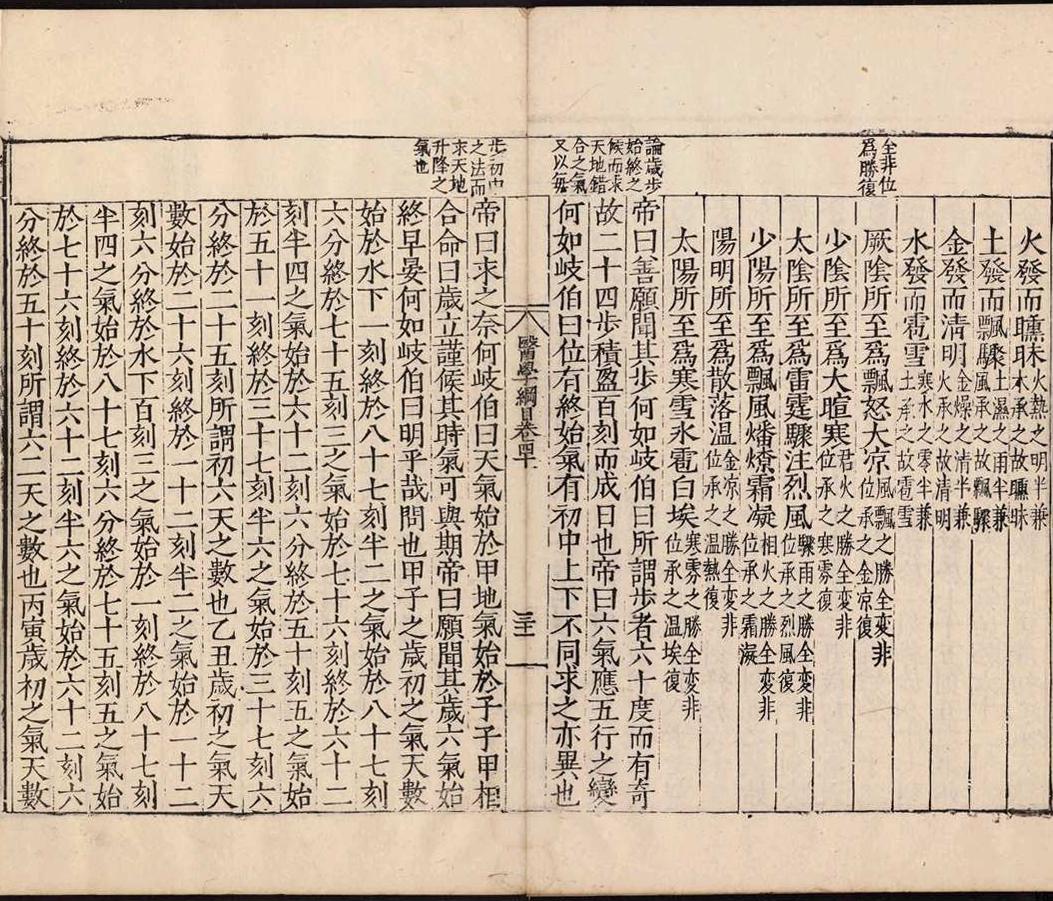 全非位
爲勝復
火發而曛昧火熱之明半兼水承之故曛昧
土發而飄驟土濕之雨半兼風承之故飄驟
金發而清明金燥之清半兼火承之故清明
水發而雹雪寒水之零半兼土承之故雹雪
厥隂所至爲飄怒大凉風飄之勝全變非位承之金凉復
少隂所至爲大暄寒君火之勝全變非位承之寒雰復
太隂所至爲雷霆驟注烈風驟雨之勝全變非位承之烈風復
少陽所至爲飄風燔燎霜凝相火之勝全變非位承之霜凝
陽明所至爲散落温金凉之勝全變非位承之温熱復
太陽所至爲寒雪氷雹白埃寒雰之勝全變非位承之温埃復
論歲步
始終之
候而求
天地錯
合之氣
又以每
帝曰善願聞其步何如岐伯曰所謂步者六十度而有奇
故二十四步積盈百刻而成日也帝曰六氣應五行之變
何如岐伯曰位有終始氣有初中上下不同求之亦異也
醫學綱目卷四十
三十二
步初中
之法而
求天地
升降之
氣也
帝曰求之奈何岐伯曰天氣始於甲地氣始於子子甲相
合命曰歲立謹候其時氣可與期帝曰願聞其歲六氣始
終早晏何如岐伯曰明乎哉問也甲子之歲初之氣天數
始於水下一刻終於八十七刻半二之氣始於八十七刻
六分終於七十五刻三之氣始於七十六刻終於六十二
刻半四之氣始於六十二刻六分終於五十刻五之氣始
於五十一刻終於三十七刻半六之氣始於三十七刻六
分終於二十五刻所謂初六天之數也乙丑歲初之氣天
數始於二十六刻終於一十二刻半二之氣始於一十二
刻六分終於水下百刻三之氣始於一刻終於八十七刻
半四之氣始於八十七刻六分終於七十五刻五之氣始
於七十六刻終於六十二刻半六之氣始於六十二刻六
分終於五十刻所謂六二天之數也丙寅歲初之氣天數